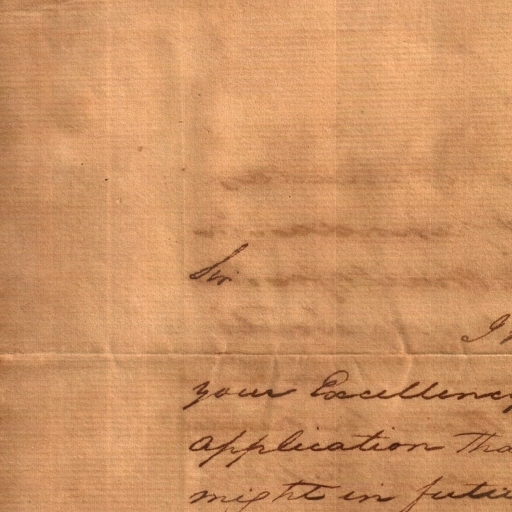 Sir
I
your Excellency
application
might in